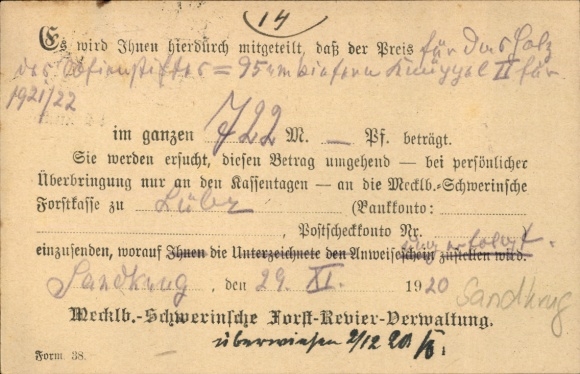 14
Es wird Ihnen hierdurch mitgeteilt, daß der Preis für das Holz
des = 95 rm kiefern Knüppel II für
1921/22
im ganzen 722 M. — Pf. beträgt.
Sie werden ersucht, diesen Betrag umgehend — bei persönlicher
Überbringung nur an den Kassentagen — an die Mecklb.-Schwerinsche
Forstkasse zu Lübz (Bankkonto:
, Postscheckkonto Nr.
einzusenden, worauf Ihnen die Unterzeichnete den Anweiseschein zustellen wird.
erfolgt.
Sandkrug, den 29. XI. 1920
Sandkrug
Mecklb.-Schwerinsche Forst-Revier-Verwaltung.
überwiesen 2/12 20
Form. 38.